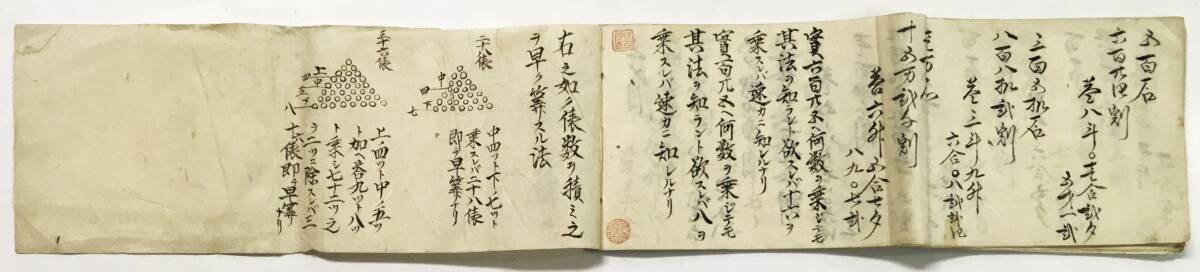 五百石
六百廿四割
答八斗〇壱合弐夕
三百五拾石
八百八拾弐割
答三斗九升
六合〇八弐
壱万石
十五万弐千割
答六升五合七夕
八九〇七弐
實六百廿五ヘ何数ヲ乗ジテモ
其法ヲ知ラント欲スレバ十六ヲ
乗スレバ速カニ知レルナリ
實百廿五ヘ何数ヲ乗ジテモ
其法ヲ知ラント欲スレバ八ヲ
乗スレバ速カニ知レルナリ
右之如ク俵数ヲ積ミ之
ヲ早ク筭スル法
二十八俵
中
四 下
七
中四ツト下ノ七ツト
乗スレバ二十八俵
即チ早筭ナリ
三十六俵
上中
四五下
八
上ノ四ツト中ノ五ツ
ト加ヘ答九ツト八ツ
ト乗シ七十二ツ之
ヲ二ツニ除スレバ三
十六俵即チ早筭
ナリ